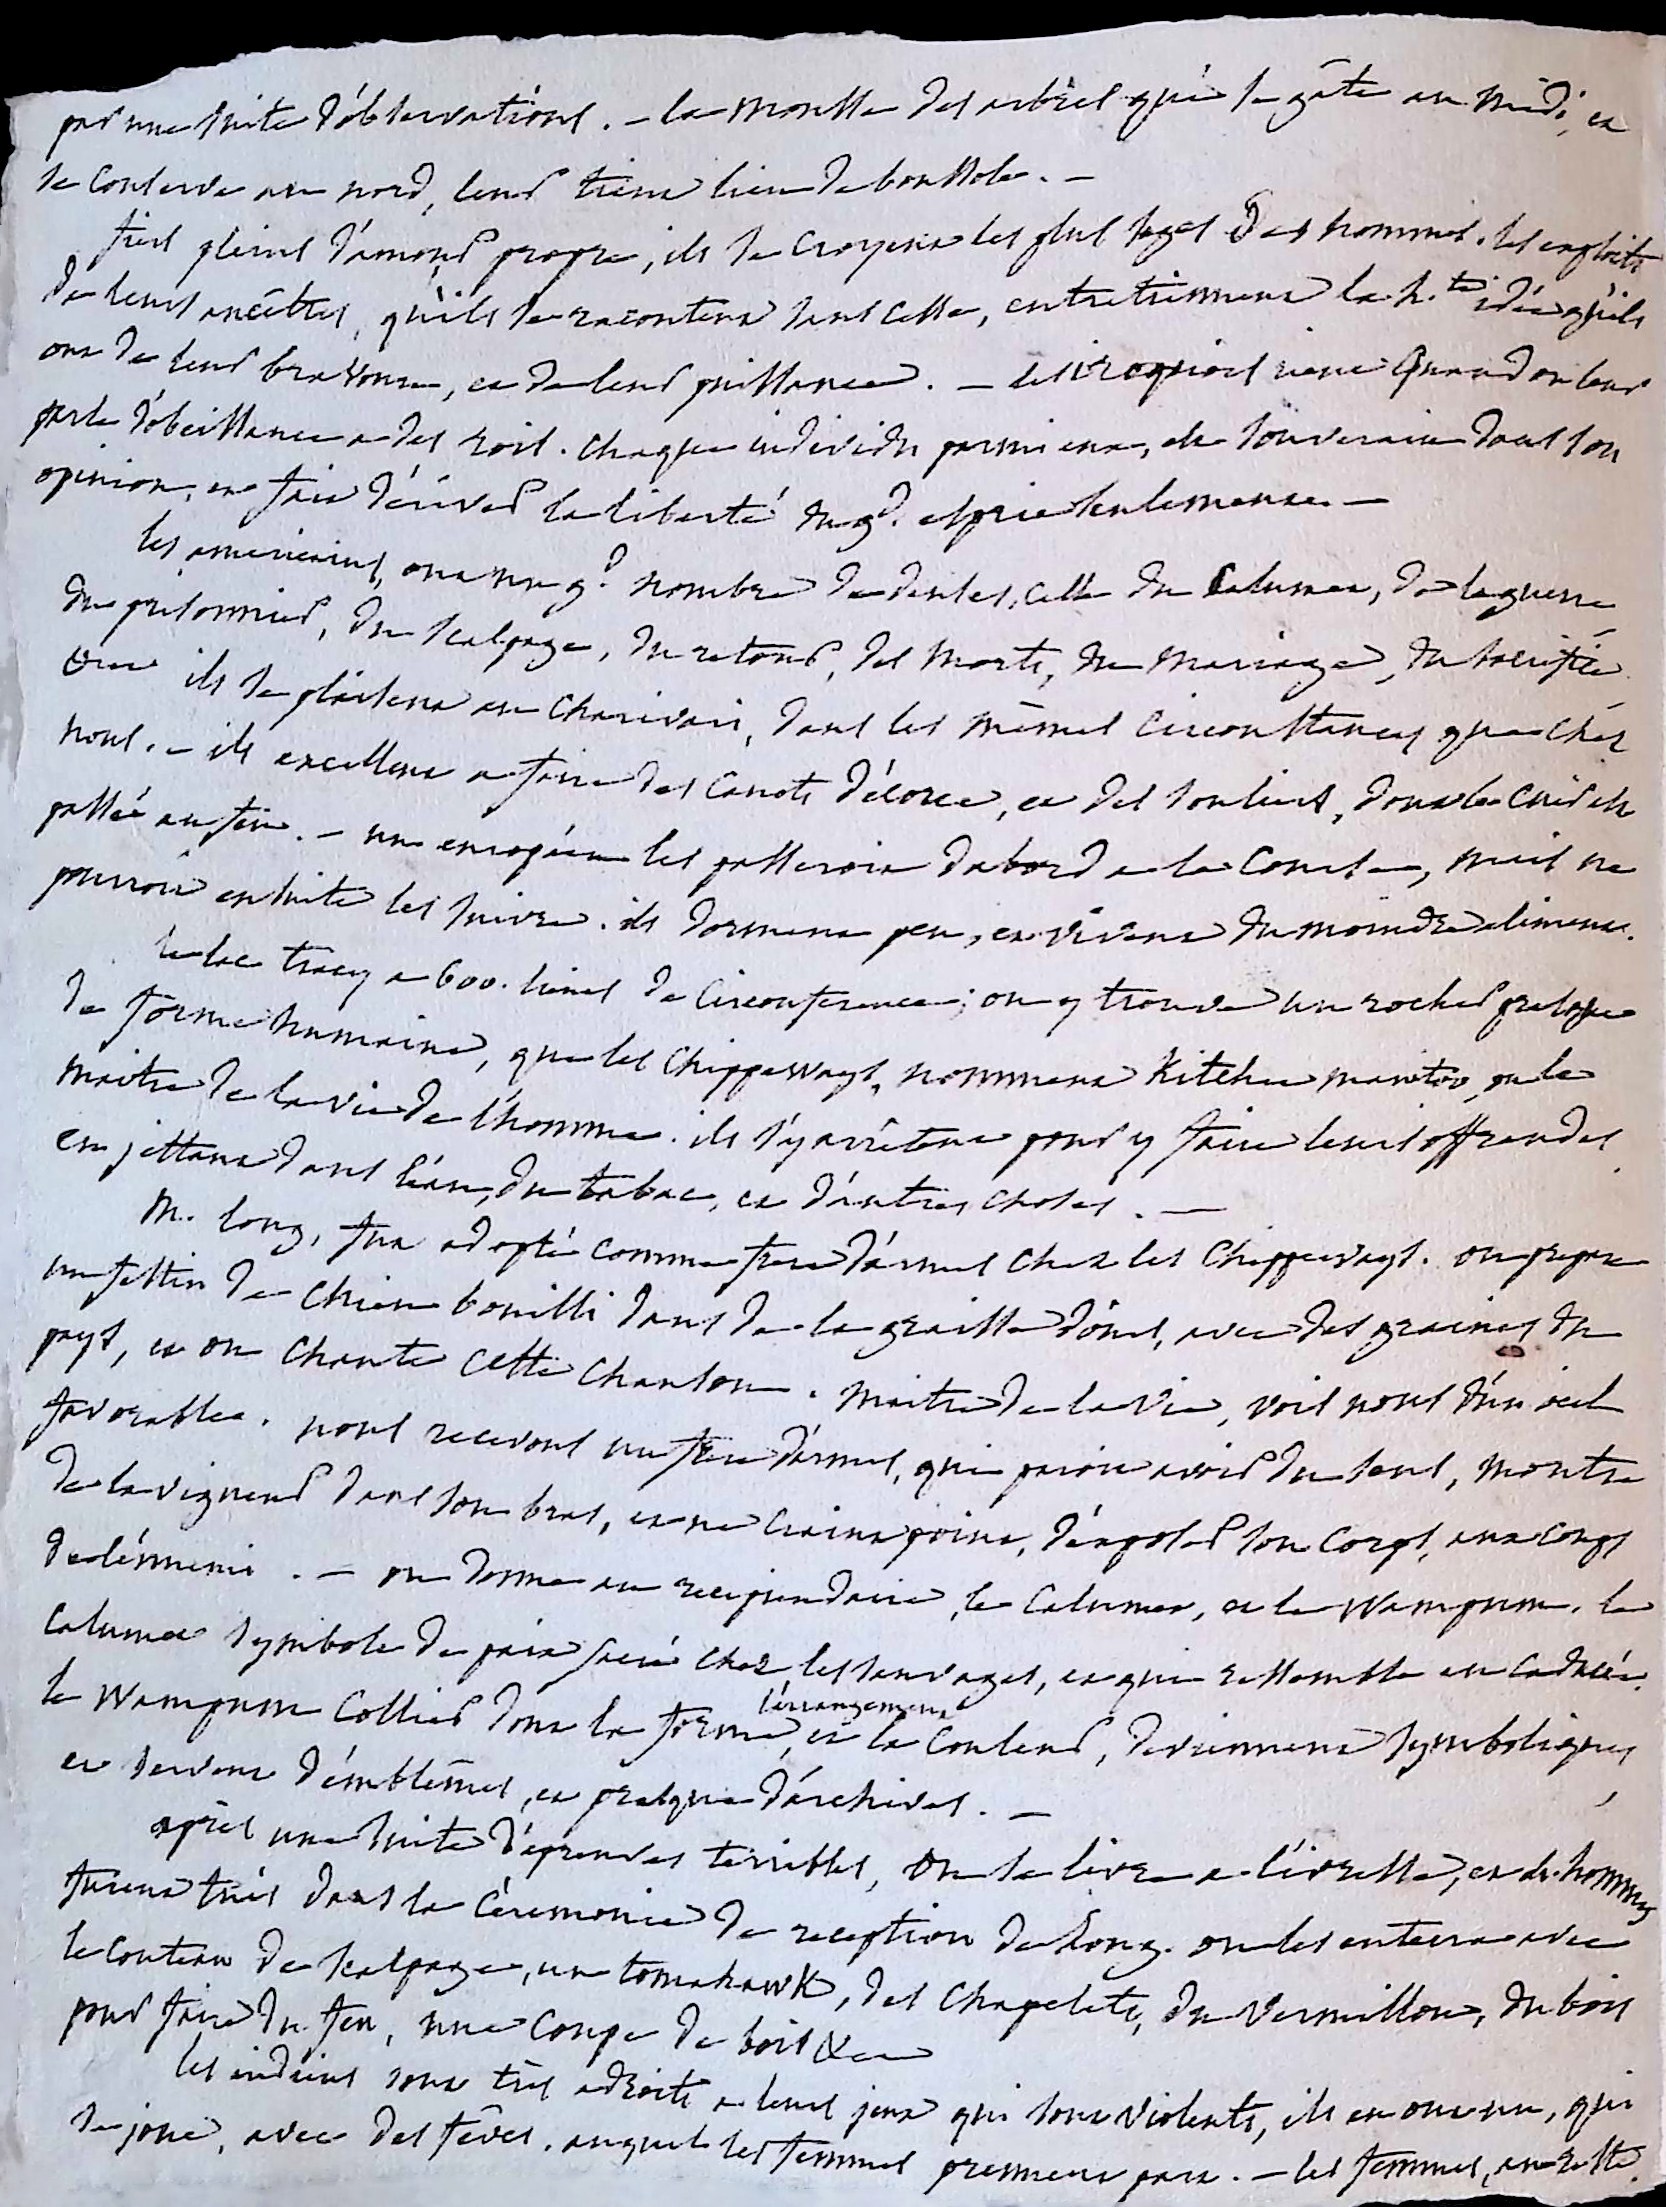 par une suite d'observations. - la mousse des arbres qui se gâte au midi, et
se conserve au nord, leur tient lieu de boussole. -
fiers pleins d'amour propre, ils se croyent les plus sages des hommes. les exploits
de leurs ancêttres, qu'ils se racontent sans cesse, entretiennent la h.te idée qu'ils
ont de leur bravoure, et de leur puissance. - les iroquois rient quand on leur
parle d'obeissance a des rois. chaque individu parmi eux, est souverain dans son
opinion, et fait dériver la liberté du gd. esprit seulement. -
les americains, ont un gd. nombre de danses, celle du Calumet, de la guerre
du prisonnier, du scalpage, du retour, des morts, du mariage, du sacrifice
&ca ils se plaisent au charivari, dans les mêmes circonstances que chez
nous. - ils excellent a faire des canots d'écorce, et des souliers, dont le cuir est
passé au feu. - un européen les passeroit dabord a la course, mais ne
pourroit ensuite les suivre. ils dorment peu, et vivent du moindre aliment.
le lac tracy a 600. lieues de circonference; on y trouve un rocher presque
de forme humaine, que les Chippeways, nomment Kitchee manitoo, ou le
maitre de la vie de l'homme. ils s'y arrêtent pour y faire leurs offrandes
en jettant dans l'eau, du tabac, et d'autres choses. -
M. long, fut adopté comme frere d'armes chez les Chippeways. on prepare
un festin de chien bouilli dans de la graisse d'ours, avec des graines du
pays, et on chante cette chanson. maitre de la vie, vois nous d'un oeil
favorable. nous recevons un frere d'armes, qui paroit avoir du sens, montre
de la vigueur dans son bras, et ne craint point, d'exposer son corps, aux coups
de l'énnemi. - on donne au recipiendaire, le calumet, et le wampum. le
calumet symbole de paix sacré chez les sauvages, et qui ressemble au caducée.
le wampum collier dont la forme, l'arrangement et la couleur, deviennent symboliques
et servent d'emblêmes, et presque d'archives. -
après une suite d'epreuves terribles, on se livre a l'ivresse, et dx. hommes
furent tués dans la cèremonie de reception de Long. on les enterra avec
le couteau de scalpage, un tomahawk, des chapelets, du vermillon, du bois
pour faire du feu, une coupe de bois &ca
les indiens sont très adroits a leurs jeux qui sont violents, ils en ont un, qui
se joue, avec des fêves. auquel les femmes prennent part. - les femmes, au reste